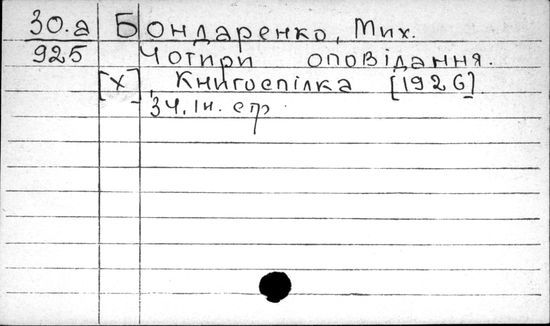 30.а Бондаренко, Мих.
925 Чотири оповідання.
[Х], Книгоспілка [1926]
34, ін. стр.